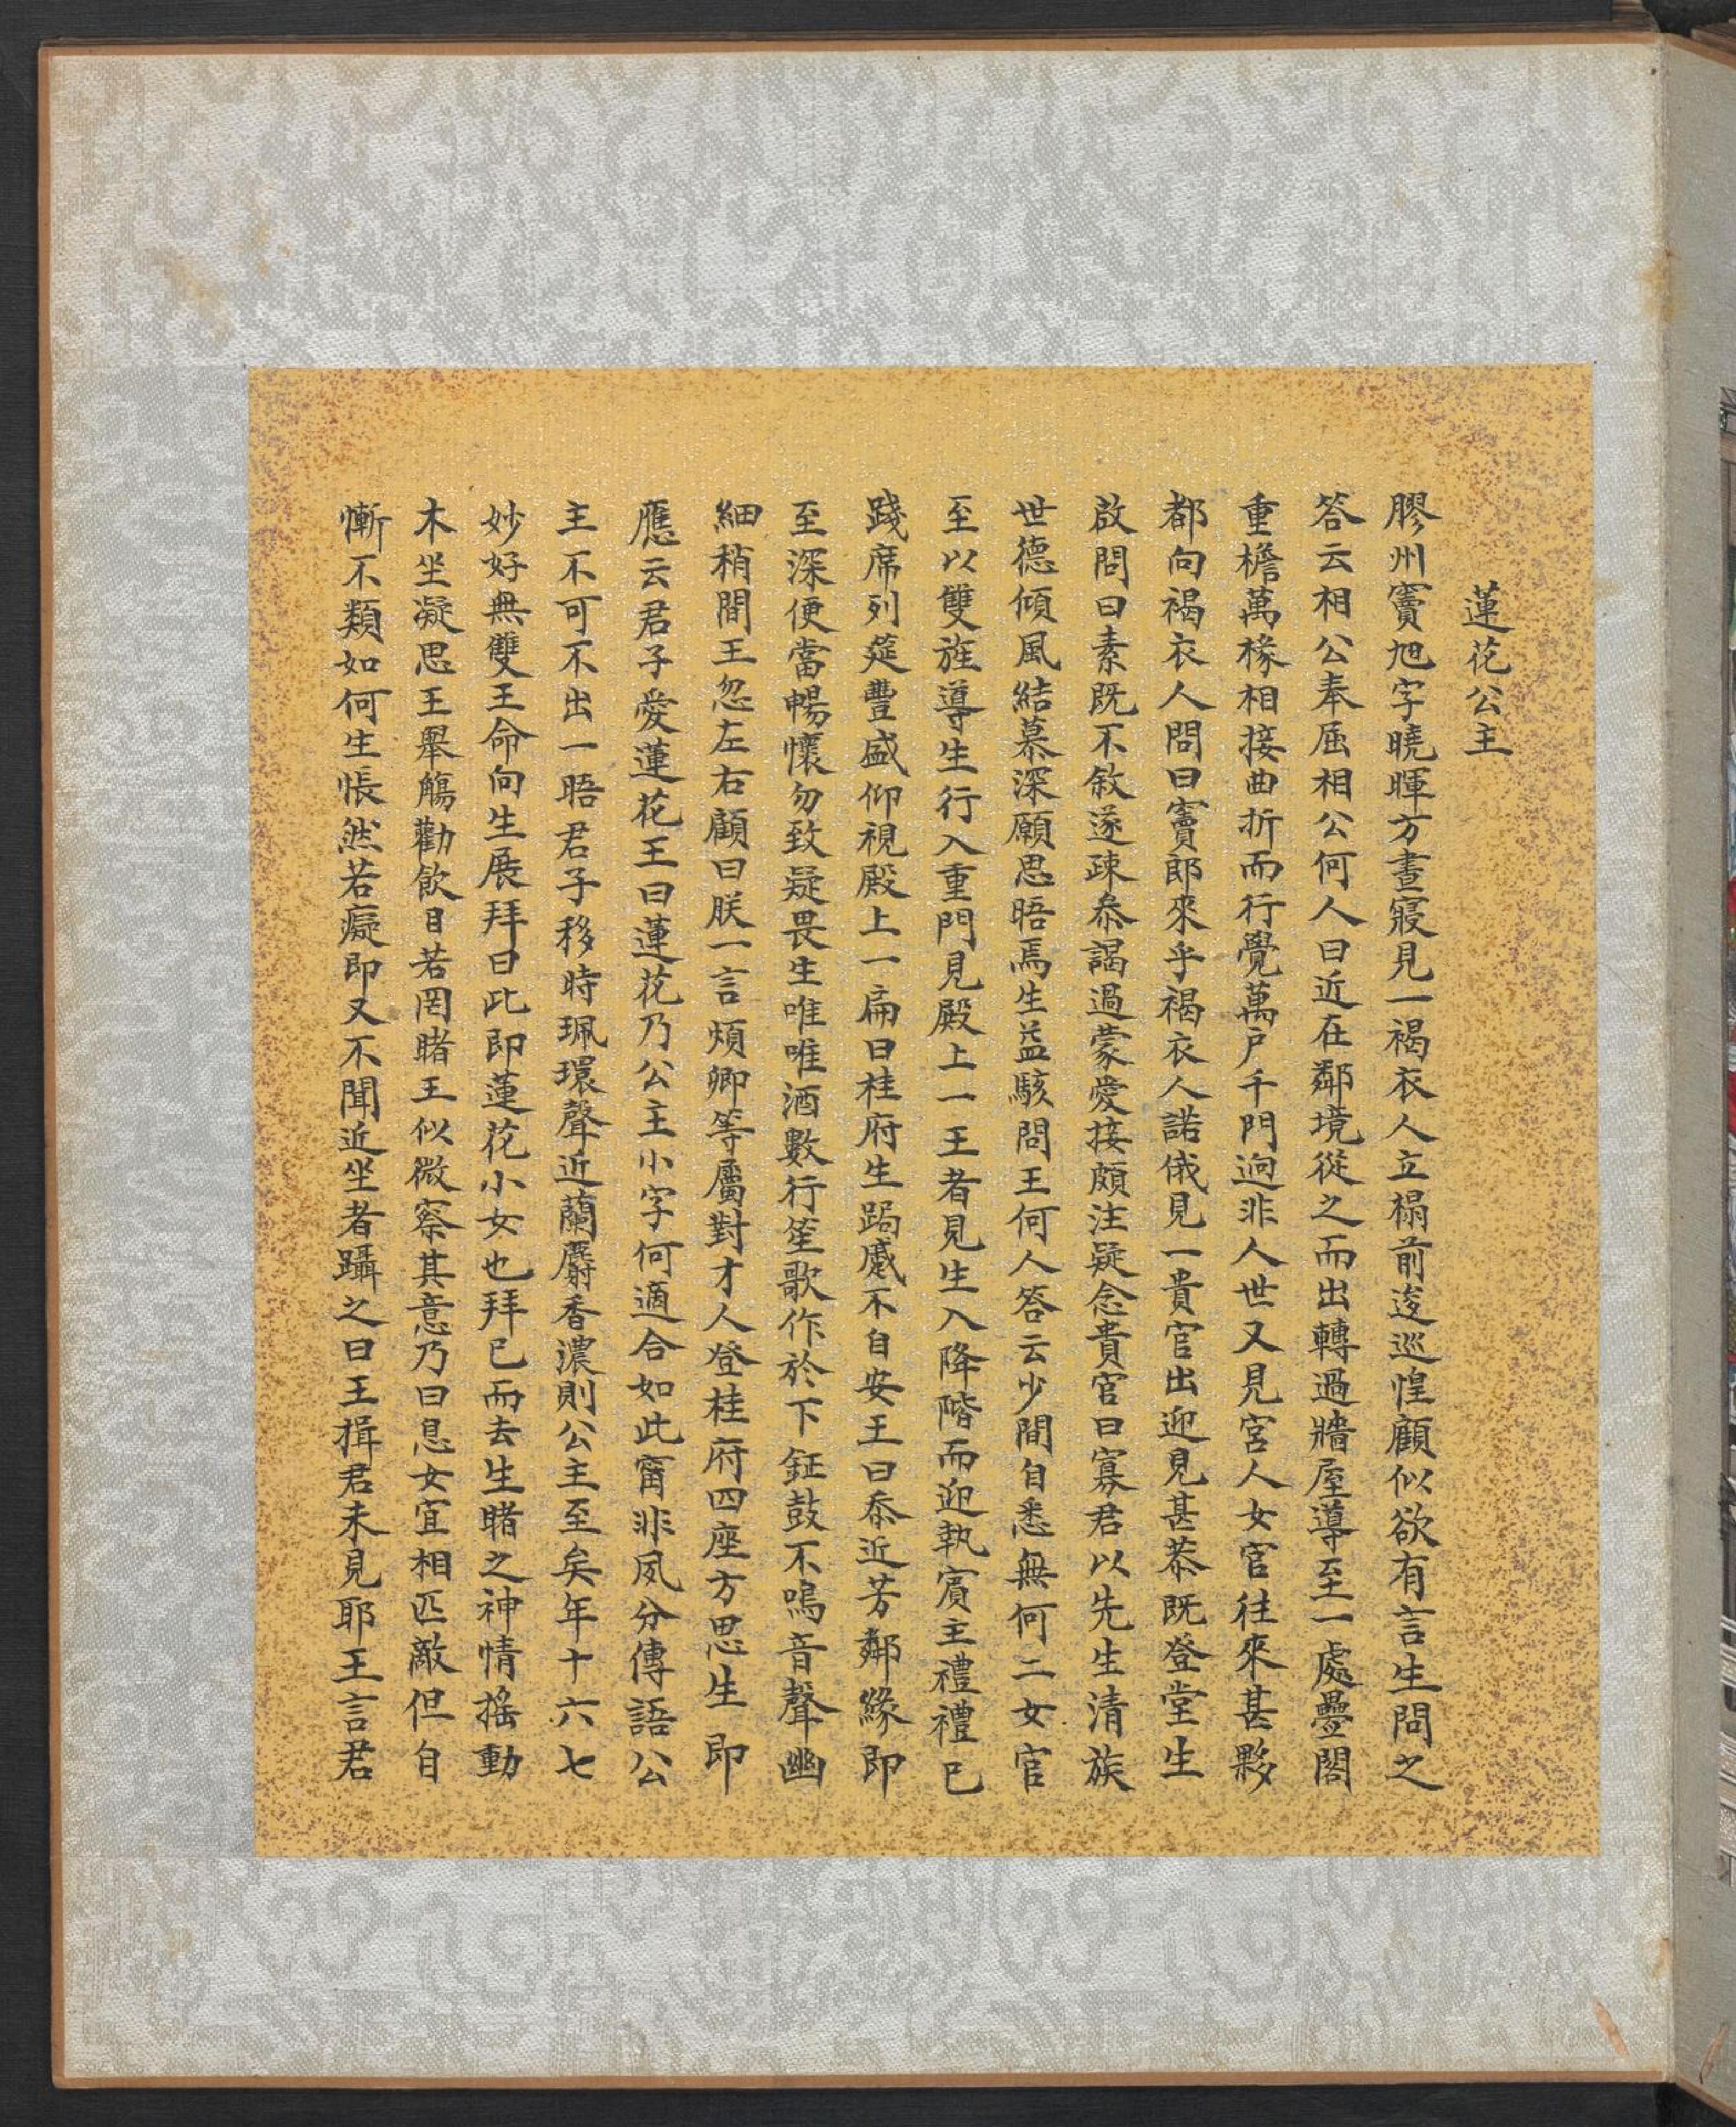 蓮花公主
膠州竇旭字曉暉方晝寢見一褐衣人立榻前逡巡惶顧似欲有言生問之
答云相公奉屈相公何人曰近在鄰境從之而出轉過牆屋導至一處疊閣
重檐萬椽相接曲折而行覺萬戶千門迥非人世又見宮人女官往來甚夥
都向褐衣人問曰竇郎來乎褐衣人諾俄見一貴官出迎見甚恭既登堂生
啟問曰素既不敘遂疎叅謁過蒙愛接頗注疑念貴官曰寡君以先生清族
世德傾風結慕深願思晤焉生益駭問王何人答云少間自悉無何二女官
至以雙旌導生行入重門見殿上一王者見生入降階而迎執賓主禮禮已
踐席列筵豐盛仰視殿上一扁曰桂府生跼蹙不自安王曰忝近芳鄰緣即
至深便當暢懷勿致疑畏生唯唯酒數行笙歌作於下鉦鼓不鳴音聲幽
細稍間王忽左右顧曰朕一言煩卿等屬對才人登桂府四座方思生即
應云君子愛蓮花王曰蓮花乃公主小字何適合如此甯非夙分傳語公
主不可不出一晤君子移時珮環聲近蘭麝香濃則公主至矣年十六七
妙好無雙王命向生展拜曰此即蓮花小女也拜已而去生睹之神情搖動
木坐凝思王舉觴勸飲目若罔睹王似微察其意乃曰息女宜相匹敵但自
慚不類如何生悵然若癡即又不聞近坐者躡之曰王揖君未見耶王言君